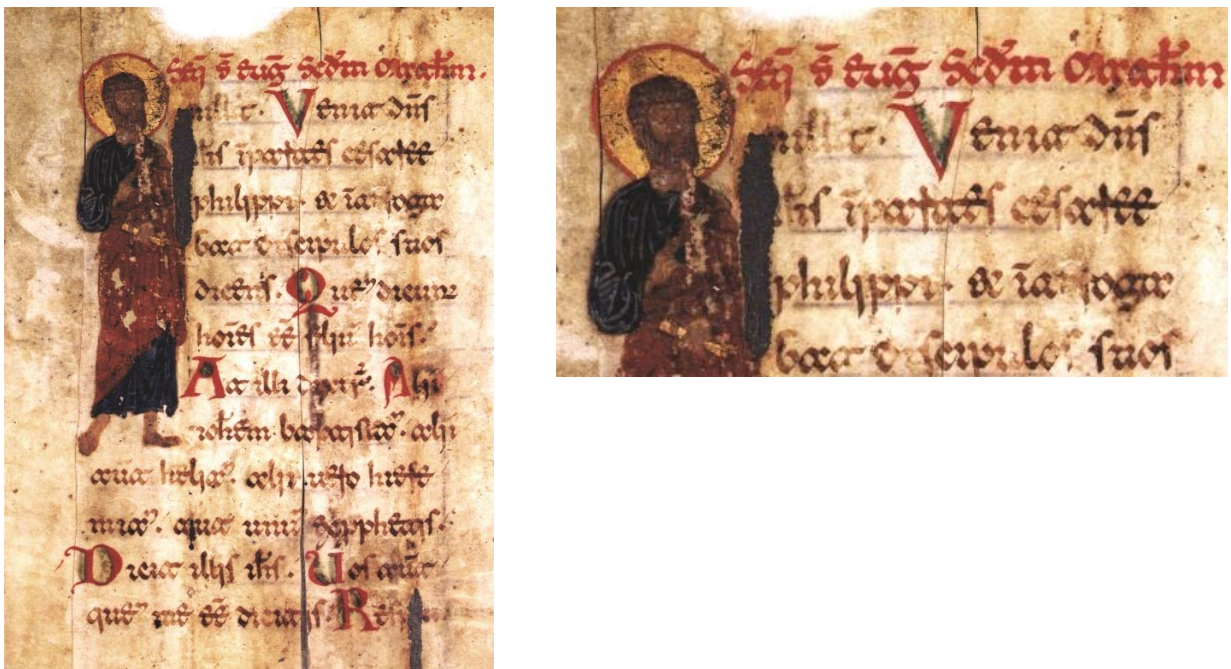 Seq̄ s̄ eug̅ scdm Matheum.
illo t̄. Venit dn̄s
ih̄s ī partes cesaree
philippi. & īterroga
bat discipulos suos
dicens. Quē dicunt
hoīes eē filiū hoīs.
At illi dixer̄. Alii
ioh̄em baptistā. alii
aūt heliā. alii uero hiere
miā. aut unū ex pphetis.
Dicit illis ih̄s. Uos aūt
quē me eē dicitis. R
Seq̄ s̄ eug̅ scdm Matheum
illo t̄. Venit dn̄s
ih̄s ī partes cesaree
philippi. & īterroga
bat discipulos suos